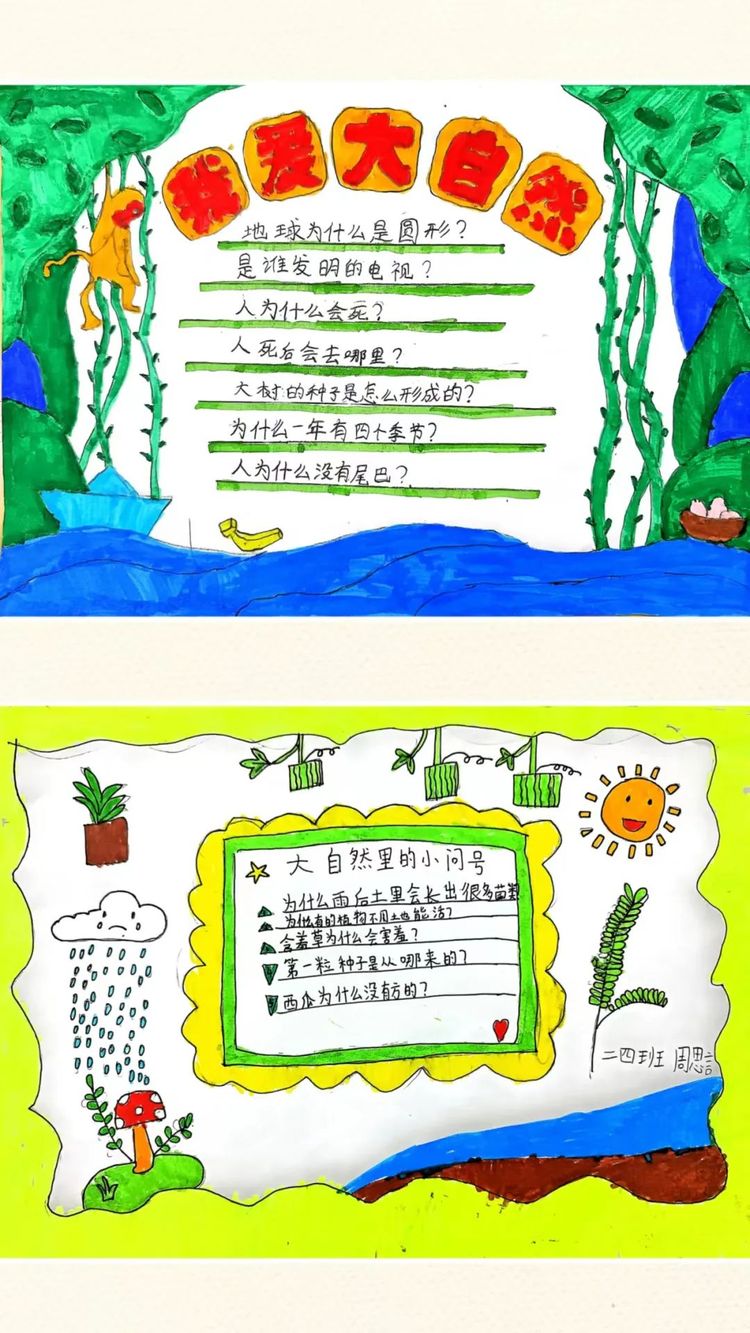 我爱大自然
地球为什么是圆形?
是谁发明的电视?
人为什么会死?
人死后会去哪里?
大树的种子是怎么形成的?
为什么一年有四个季节?
人为什么没有尾巴?
大自然里的小问号
为什么雨后土里会长出很多苗
为什么有的植物不用土也能活?
含羞草为什么会害羞?
第一粒种子是从哪来的?
西瓜为什么没有方的?
二四班 周思言